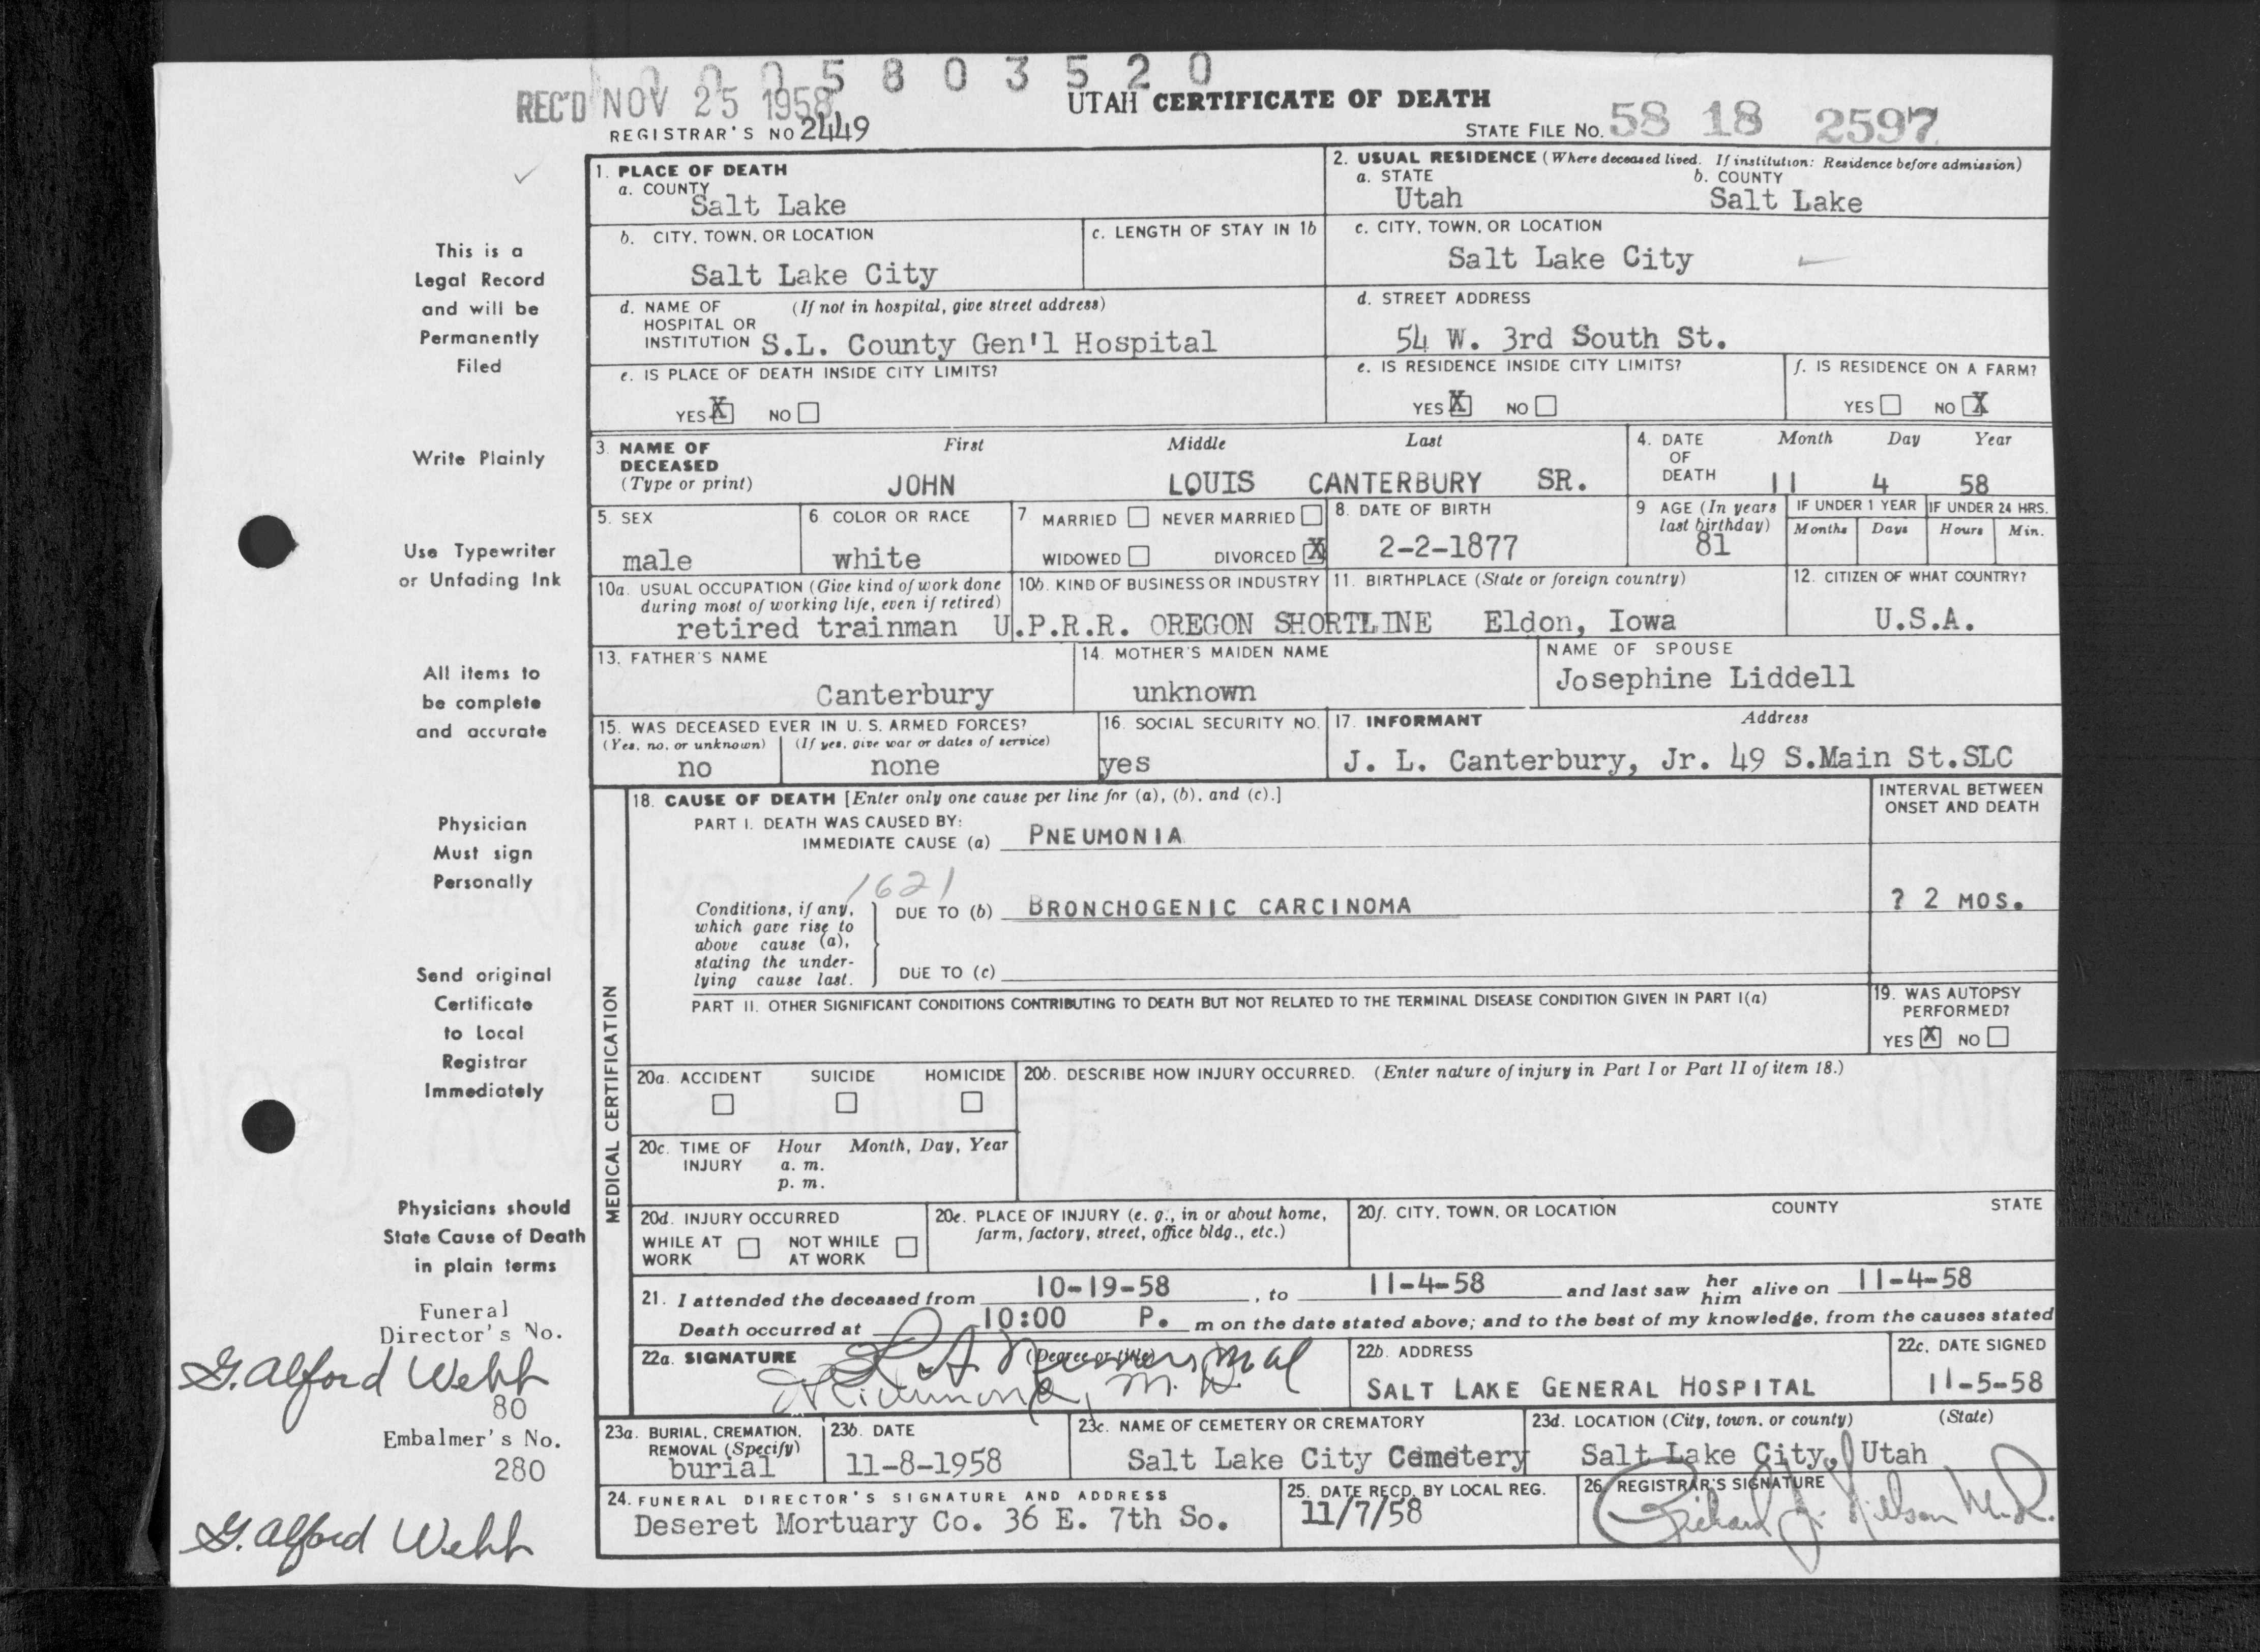 0005803520
REC'D NOV 25 1958
UTAH CERTIFICATE OF DEATH
REGISTRAR'S NO 2449
STATE FILE NO. 58 18 2597
This is a
Legal Record
and will be
Permanently
Filed
Write Plainly
Use Typewriter
or Unfading Ink
All items to
be complete
and accurate
Physician
Must sign
Personally
Send original
Certificate
to Local
Registrar
Immediately
Physicians should
State Cause of Death
in plain terms
Funeral
Director's No.
G. Alford Webb
80
Embalmer's No.
280
G. Alford Webb
1. PLACE OF DEATH
a. COUNTY
Salt Lake
2. USUAL RESIDENCE (Where deceased lived. If institution: Residence before admission)
a. STATE b. COUNTY
Utah Salt Lake
b. CITY, TOWN, OR LOCATION
Salt Lake City
c. LENGTH OF STAY IN 1b
c. CITY, TOWN, OR LOCATION
Salt Lake City
d. NAME OF (If not in hospital, give street address)
HOSPITAL OR
INSTITUTION S.L. County Gen'l Hospital
d. STREET ADDRESS
54 W. 3rd South St.
e. IS PLACE OF DEATH INSIDE CITY LIMITS?
YES X NO
e. IS RESIDENCE INSIDE CITY LIMITS?
YES X NO
f. IS RESIDENCE ON A FARM?
YES NO X
3. NAME OF First Middle Last
DECEASED
(Type or print) JOHN LOUIS CANTERBURY SR.
4. DATE Month Day Year
OF
DEATH 11 4 58
5. SEX
male
6 COLOR OR RACE
white
7 MARRIED NEVER MARRIED
WIDOWED DIVORCED X
8. DATE OF BIRTH
2-2-1877
9 AGE (In years
last birthday)
81
IF UNDER 1 YEAR
Months Days
IF UNDER 24 HRS.
Hours Min.
10a. USUAL OCCUPATION (Give kind of work done
during most of working life, even if retired)
10b. KIND OF BUSINESS OR INDUSTRY
retired trainman U.P.R.R. OREGON SHORTLINE
11. BIRTHPLACE (State or foreign country)
Eldon, Iowa
12. CITIZEN OF WHAT COUNTRY?
U.S.A.
13. FATHER'S NAME
Canterbury
14. MOTHER'S MAIDEN NAME
unknown
NAME OF SPOUSE
Josephine Liddell
15. WAS DECEASED EVER IN U. S. ARMED FORCES?
(Yes, no, or unknown) (If yes, give war or dates of service)
no none
16. SOCIAL SECURITY NO.
yes
17. INFORMANT Address
J. L. Canterbury, Jr. 49 S.Main St.SLC
MEDICAL CERTIFICATION
18. CAUSE OF DEATH [Enter only one cause per line for (a), (b), and (c).]
PART I. DEATH WAS CAUSED BY:
IMMEDIATE CAUSE (a) PNEUMONIA
INTERVAL BETWEEN
ONSET AND DEATH
1621
Conditions, if any,
which gave rise to
above cause (a),
stating the under-
lying cause last.
DUE TO (b) BRONCHOGENIC CARCINOMA
? 2 MOS.
DUE TO (c)
PART II. OTHER SIGNIFICANT CONDITIONS CONTRIBUTING TO DEATH BUT NOT RELATED TO THE TERMINAL DISEASE CONDITION GIVEN IN PART I(a)
19. WAS AUTOPSY
PERFORMED?
YES X NO
20a. ACCIDENT SUICIDE HOMICIDE
20b. DESCRIBE HOW INJURY OCCURRED. (Enter nature of injury in Part I or Part II of item 18.)
20c. TIME OF Hour Month, Day, Year
INJURY a. m.
p. m.
20d. INJURY OCCURRED
WHILE AT NOT WHILE
WORK AT WORK
20e. PLACE OF INJURY (e. g., in or about home,
farm, factory, street, office bldg., etc.)
20f. CITY, TOWN, OR LOCATION COUNTY STATE
21. I attended the deceased from 10-19-58, to 11-4-58 and last saw her him alive on 11-4-58
Death occurred at 10:00 P. m on the date stated above; and to the best of my knowledge, from the causes stated
22a. SIGNATURE (Degree or title)
Richmond, M. D.
22b. ADDRESS
SALT LAKE GENERAL HOSPITAL
22c. DATE SIGNED
11-5-58
23a. BURIAL, CREMATION,
REMOVAL (Specify)
burial
23b. DATE
11-8-1958
23c. NAME OF CEMETERY OR CREMATORY
Salt Lake City Cemetery
23d. LOCATION (City, town, or county) (State)
Salt Lake City, Utah
24. FUNERAL DIRECTOR'S SIGNATURE AND ADDRESS
Deseret Mortuary Co. 36 E. 7th So.
25. DATE RECD. BY LOCAL REG.
11/7/58
26. REGISTRAR'S SIGNATURE
Richard J. Nielson M.D.